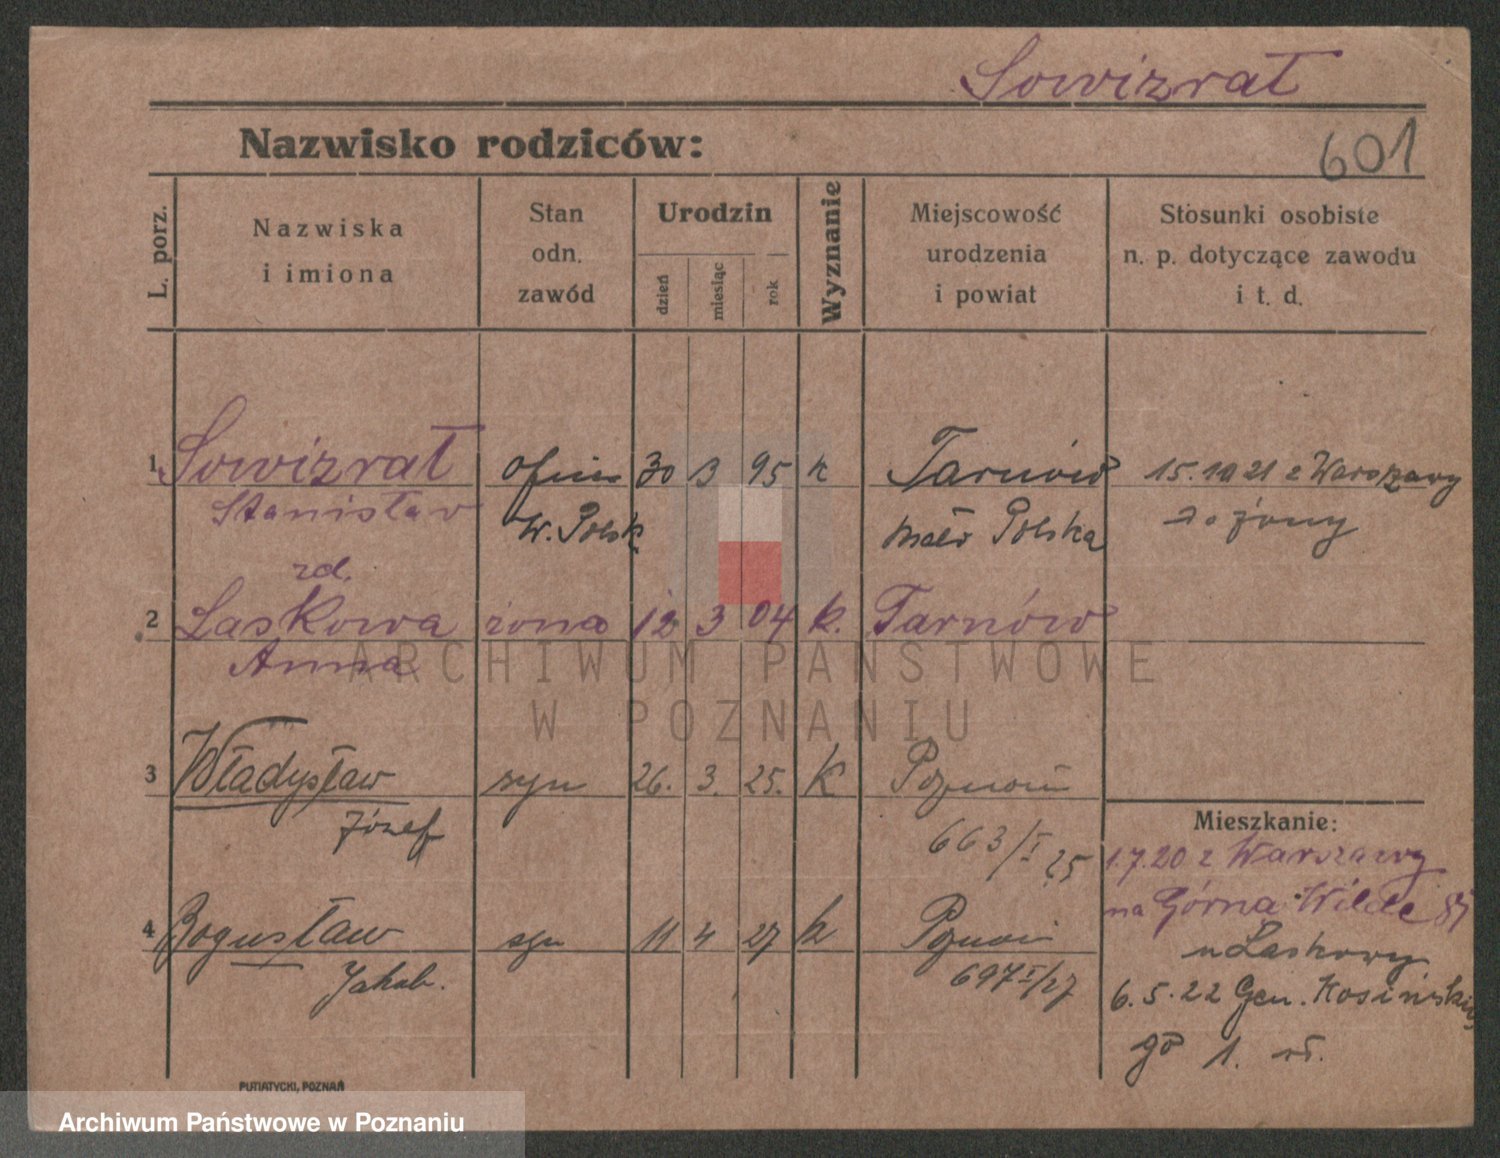 Sowizrał
Nazwisko rodziców:
601
L. porz.
Nazwiska
i imiona
Stan
odn.
zawód
Urodzin
dzień
miesiąc
rok
Wyznanie
Miejscowość
urodzenia
i powiat
Stosunki osobiste
n. p. dotyczące zawodu
i t. d.
1 Sowizrał 30 3 95 k Tarnów 15.10 21 z Warszawy
Stanisław W. Polsk Polska żony
zd.
2 Laskowa żona 12 3 04 k. Tarnów
Anna
3 Władysław syn 26. 3. 25. k Poznań
Józef 663/I 25
Mieszkanie:
1.7.20 z Warszawy
na Górna Wilde 87
4 Bogusław syn 11 4 27 k Poznań
Jakub. 697 I/27
u Laskowy
6.5.22 Gen. Kosińskie
go 1.
PUTIATYCKI, POZNAŃ
ARCHIWUM PAŃSTWOWE
W POZNANIU
Archiwum Państwowe w Poznaniu